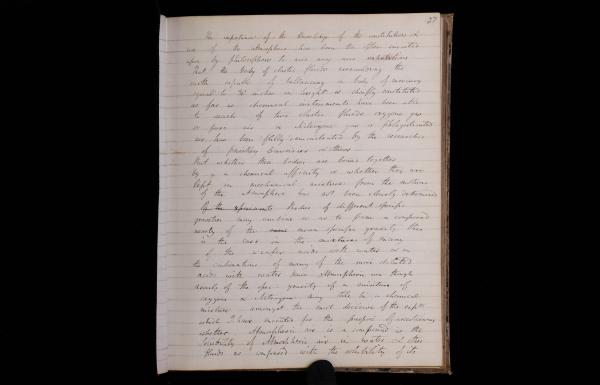 27
The importance of the knowledge of the constitution &
use of the atmosphere have been too often insisted
upon by philosophers to need any new
That the body of elastic fluids surrounding the
earth capable of ballancing a body of mercury
equal to 30 inches in height is chiefly constituted
as far as chemical instruments have been able
to reach of two elastic fluids oxygene gas
or pure air & Nitrogene gas or phlogisticated
air have been fully demonstrated by the researches
of Priestley Cavendish & others
But whether these bodies are bound together
by a chemical affinity or whether they are
kept in mechanical mixture from the motions
of the Atmosphere has not been clearly determined
bodies of different specific
gravities may combine so as to form a compound
nearly of the same mean specific gravity this
is the case in the mixtures of many
of the weaker acids with water or in
the combinations of many of the more diluted
acids with water hence Atmospheric air though
nearly of the spec gravity of a mixture of
oxygene & Nitrogene may still be a chemical
mixture amongst the most decisive of the expts
which I have instituted for the purpose of ascertaining
whether Atmospheric air is a compound is the
solubility of Atmospheric air in water & other
fluids as compared with the solubility of its